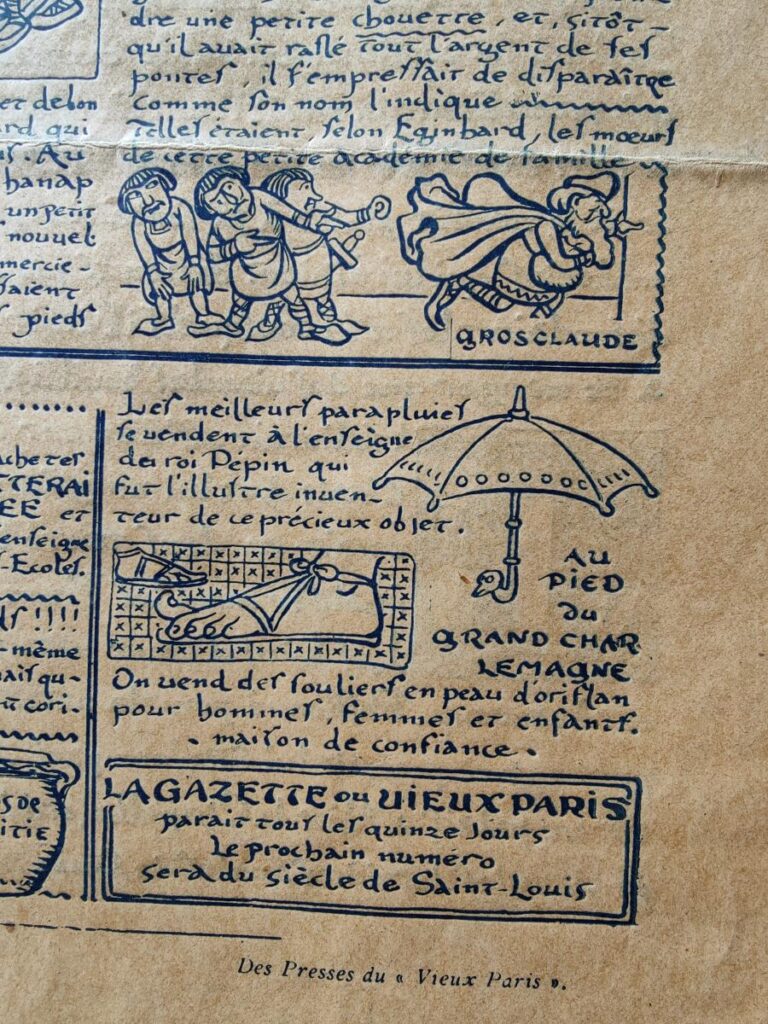 et de bon
ard qui
s. Au
hanap
un petit
nouvel
mercie-
saient
s pieds
dre une petite chouette, et, sitôt
qu'il avait raflé tout l'argent de ses
pontes, il s'empressait de disparaître
comme son nom l'indique
Telles étaient, selon Eginhard, les mœurs
de cette petite académie de famille
GROSCLAUDE
achetes
TTERAI
EE et
enseigne
s-Ecoles.
s !!!!
-même
ais qu-
t cori-
s de
itie
Les meilleurs parapluies
se vendent à l'enseigne
du roi Pépin qui
fut l'illustre inven-
teur de ce précieux objet.
AU
PIED
du
GRAND CHAR
LEMAGNE
On vend des souliers en peau d'oriflan
pour hommes, femmes et enfants.
. maison de confiance .
LA GAZETTE DU VIEUX PARIS
parait tous les quinze jours
Le prochain numéro
sera du siècle de Saint-Louis
Des Presses du « Vieux Paris ».